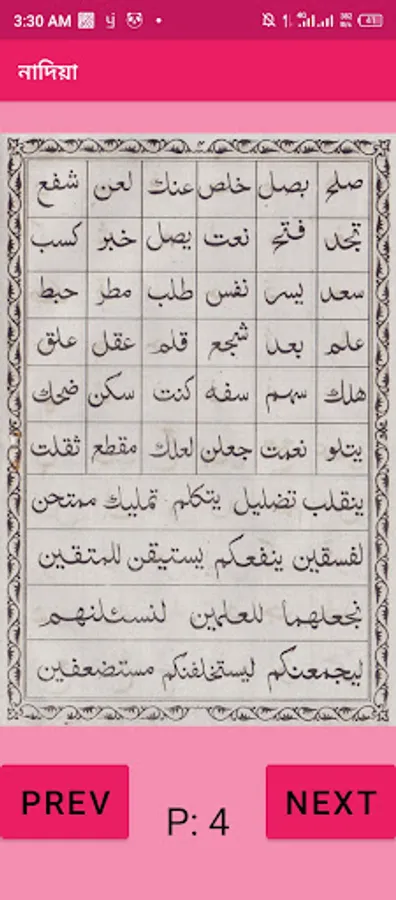 3:30 AM
নাদিয়া
صلح بصل خلص عنك لعن شفع
تجد فتح نعت يصل خبر كسب
سعد يسر نفس طلب مطر حبط
علم بعد شجع قلم عقل علق
هلك سهم سفه كنت سكن ضحك
يتلو نعمت جعلن لعلك مقطع ثقلت
ينقلب تضليل يتكلم تمليك ممتحن
لفسقين ينفعكم يستيقن للمتقين
نجعلهما للعلمين لنسئلنهم
ليجمعنكم ليستخلفنكم مستضعفين
PREV P: 4 NEXT